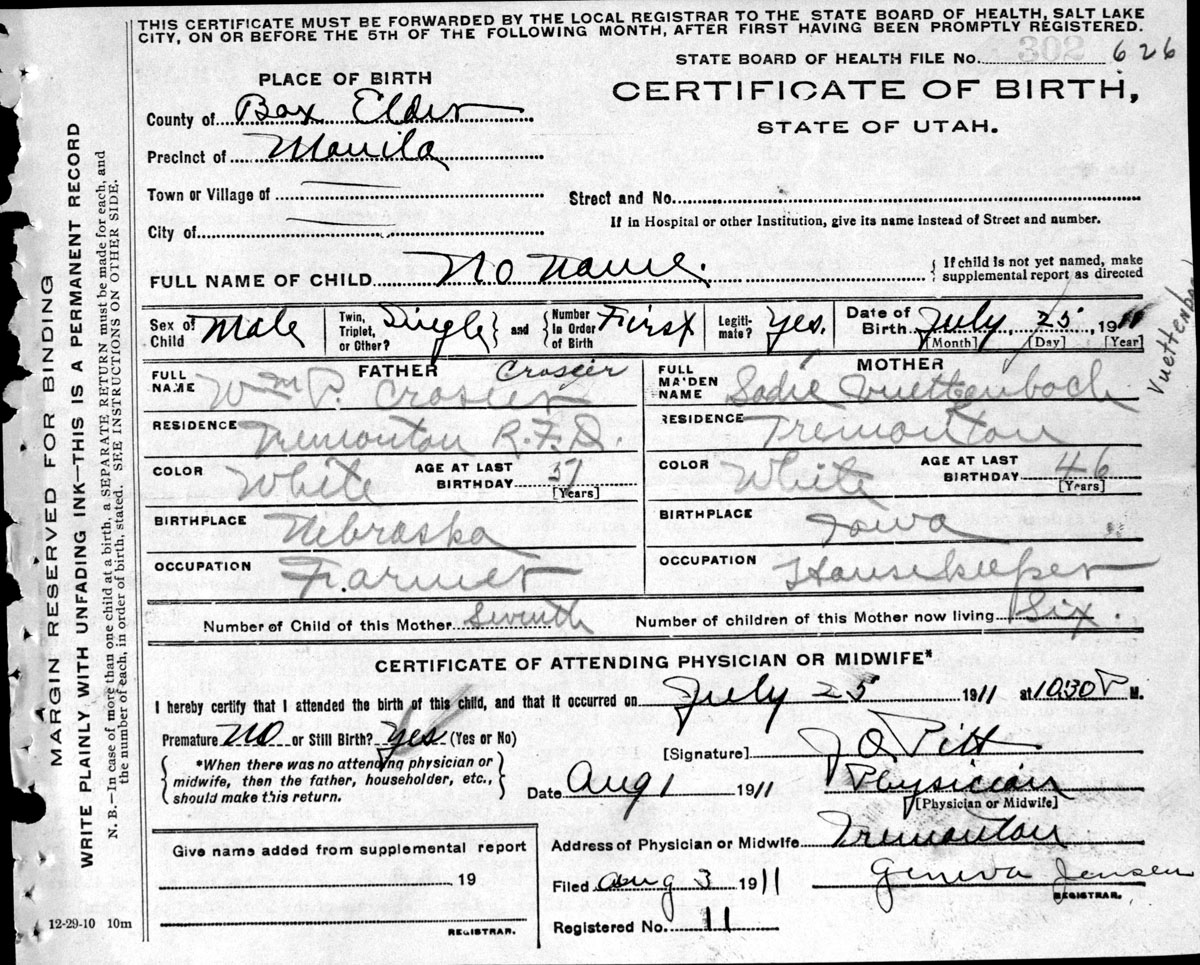 THIS CERTIFICATE MUST BE FORWARDED BY THE LOCAL REGISTRAR TO THE STATE BOARD OF HEALTH, SALT LAKE
CITY, ON OR BEFORE THE 5TH OF THE FOLLOWING MONTH, AFTER FIRST HAVING BEEN PROMPTLY REGISTERED.
STATE BOARD OF HEALTH FILE No. 302 626
PLACE OF BIRTH
CERTIFICATE OF BIRTH,
STATE OF UTAH.
County of Box Elder
Precinct of Manila
Town or Village of
Street and No.
City of
If in Hospital or other Institution, give its name instead of Street and number.
FULL NAME OF CHILD No name.
{ If child is not yet named, make
supplemental report as directed
Sex of Child Male
Twin, Triplet, or Other? Single } and { Number in Order of Birth First
Legiti-mate? Yes.
Date of Birth July, 25, 1911
[Month] [Day] [Year]
FATHER
FULL NAME Wm P. Crosier Crosier
RESIDENCE Tremonton R.F.D.
COLOR White AGE AT LAST BIRTHDAY 57
[Years]
BIRTHPLACE Nebraska
OCCUPATION Farmer
MOTHER
FULL MAIDEN NAME Sadie Vuettenbach
RESIDENCE Tremonton
COLOR White AGE AT LAST BIRTHDAY 46
[Years]
BIRTHPLACE Iowa
OCCUPATION Housekeeper
Number of Child of this Mother Seventh Number of children of this Mother now living Six.
CERTIFICATE OF ATTENDING PHYSICIAN OR MIDWIFE*
I hereby certify that I attended the birth of this child, and that it occurred on July 25 1911 at 1030 P M.
Premature No or Still Birth? Yes (Yes or No)
{ *When there was no attending physician or
midwife, then the father, householder, etc.,
should make this return. }
[Signature] J O Pitt
Date Aug 1 1911 Physician
[Physician or Midwife]
Address of Physician or Midwife Tremonton
Filed Aug 3 1911 Geneva Jensen
REGISTRAR.
Registered No. 11
Give name added from supplemental report
19
REGISTRAR.
MARGIN RESERVED FOR BINDING
WRITE PLAINLY WITH UNFADING INK—THIS IS A PERMANENT RECORD
N. B.—In case of more than one child at a birth, a SEPARATE RETURN must be made for each, and
the number of each, in order of birth, stated. SEE INSTRUCTIONS ON OTHER SIDE.
12-29-10 10m